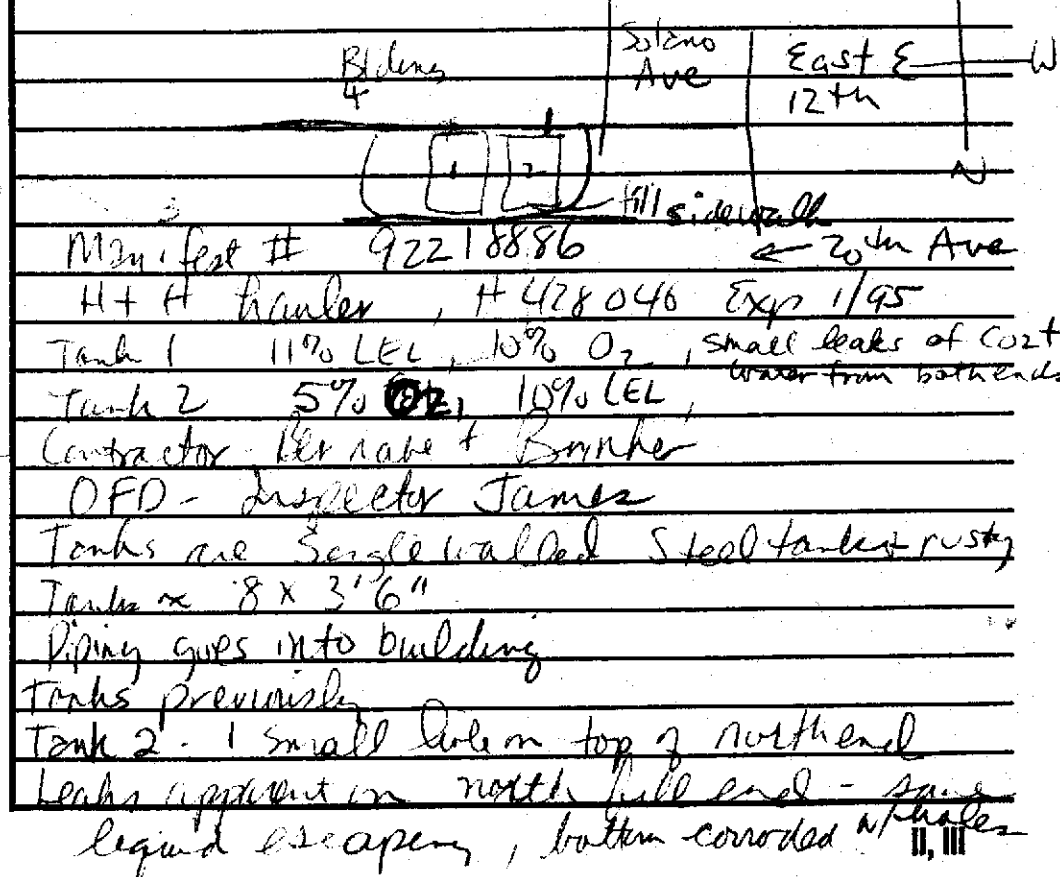 Solano
Ave
East E W
12th
4
1 2
N
fill sidewalk
Manifest # 92218886 ← 20th Ave
H + H hauler, # 428046 Exp 1/95
Tank 1 11% LEL, 10% O2, small leaks of
water from both ends
Tank 2 5% O2, 10% LEL,
Contractor -
OFD - Inspector James
Tanks are Single walled Steel tanks + rusty
Tanks ≈ 8 x 3'6"
Piping goes into building
Tanks previously
Tank 2 - 1 small hole on top of north end
Leaks apparent on north fill end - some
liquid escaping, bottom corroded w/ holes
II, III